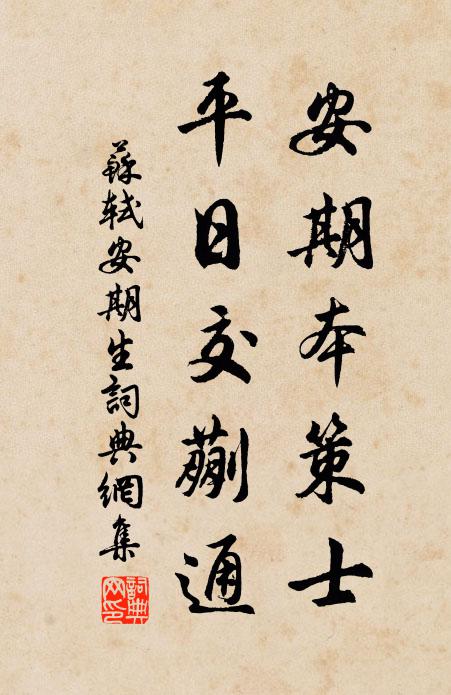 安期本策士
平日交蒯通
蘇軾安期生詞典網集
詞典
网印